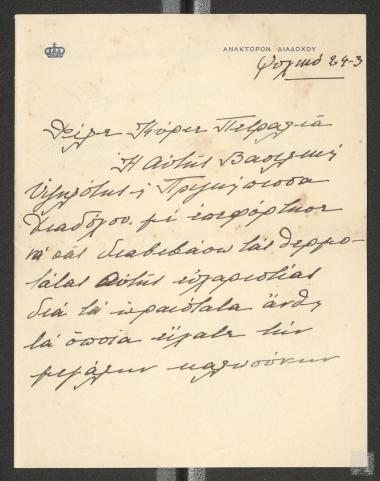 ΑΝΑΚΤΟΡΟΝ ΔΙΑΔΟΧΟΥ
Ψυχικό 24-3
Φίλε Κύριε Πετραλιά
Ἡ Αὐτῆς Βασιλική
Ὑψηλότης ἡ Πριγκήπισσα
Διαδόχου μέ ἐπεφόρτισε
νά σᾶς διαβιβάσω τάς θερμο-
τάτας Αὐτῆς εὐχαριστίας
διά τά ὡραιότατα ἄνθη
τά ὁποῖα εἴχατε τήν
μεγάλην καλωσύνην